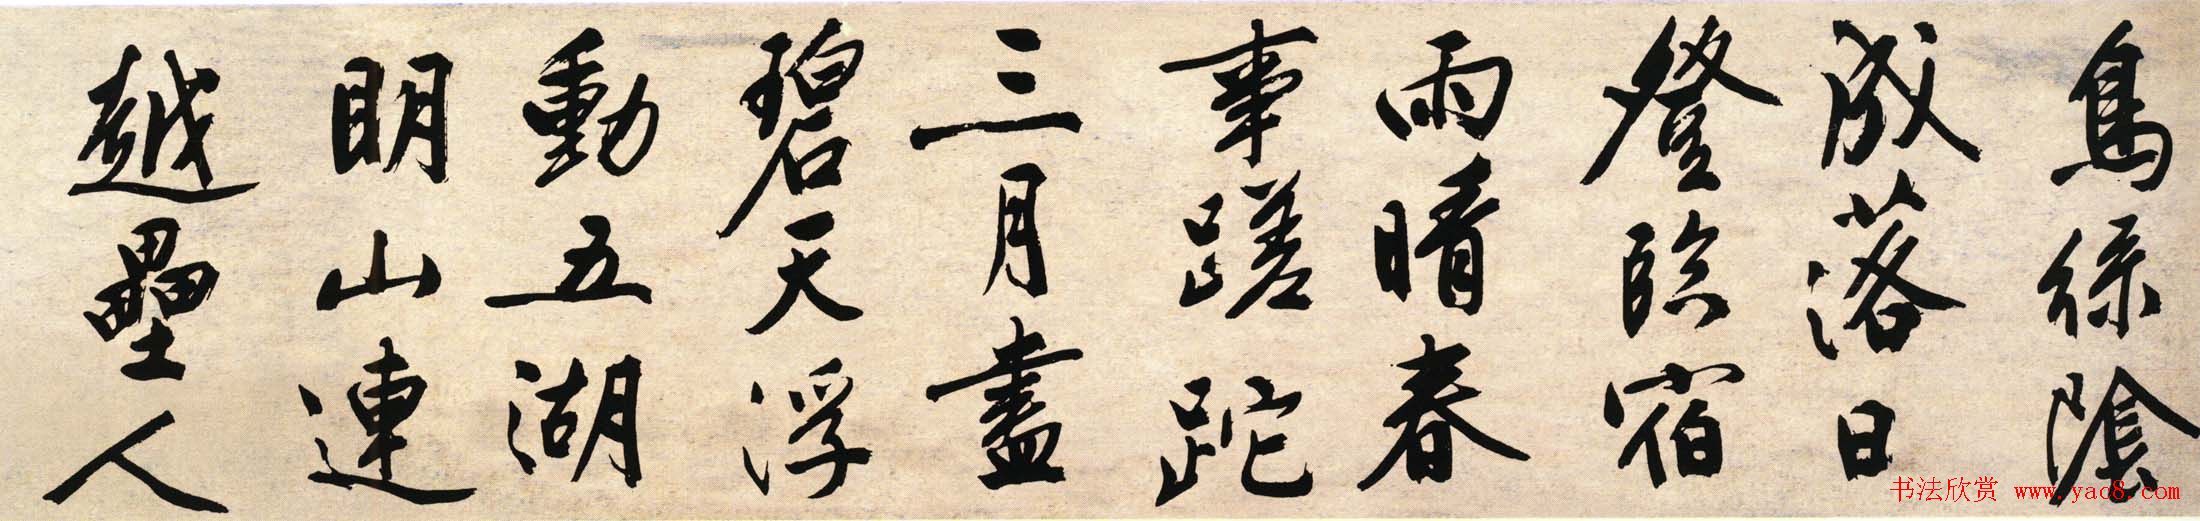 島綠陰
成落日
登臨宿
雨晴春
事蹉跎
三月盡
碧天浮
動五湖
明山連
越壘人
书法欣赏 www.yac8.com